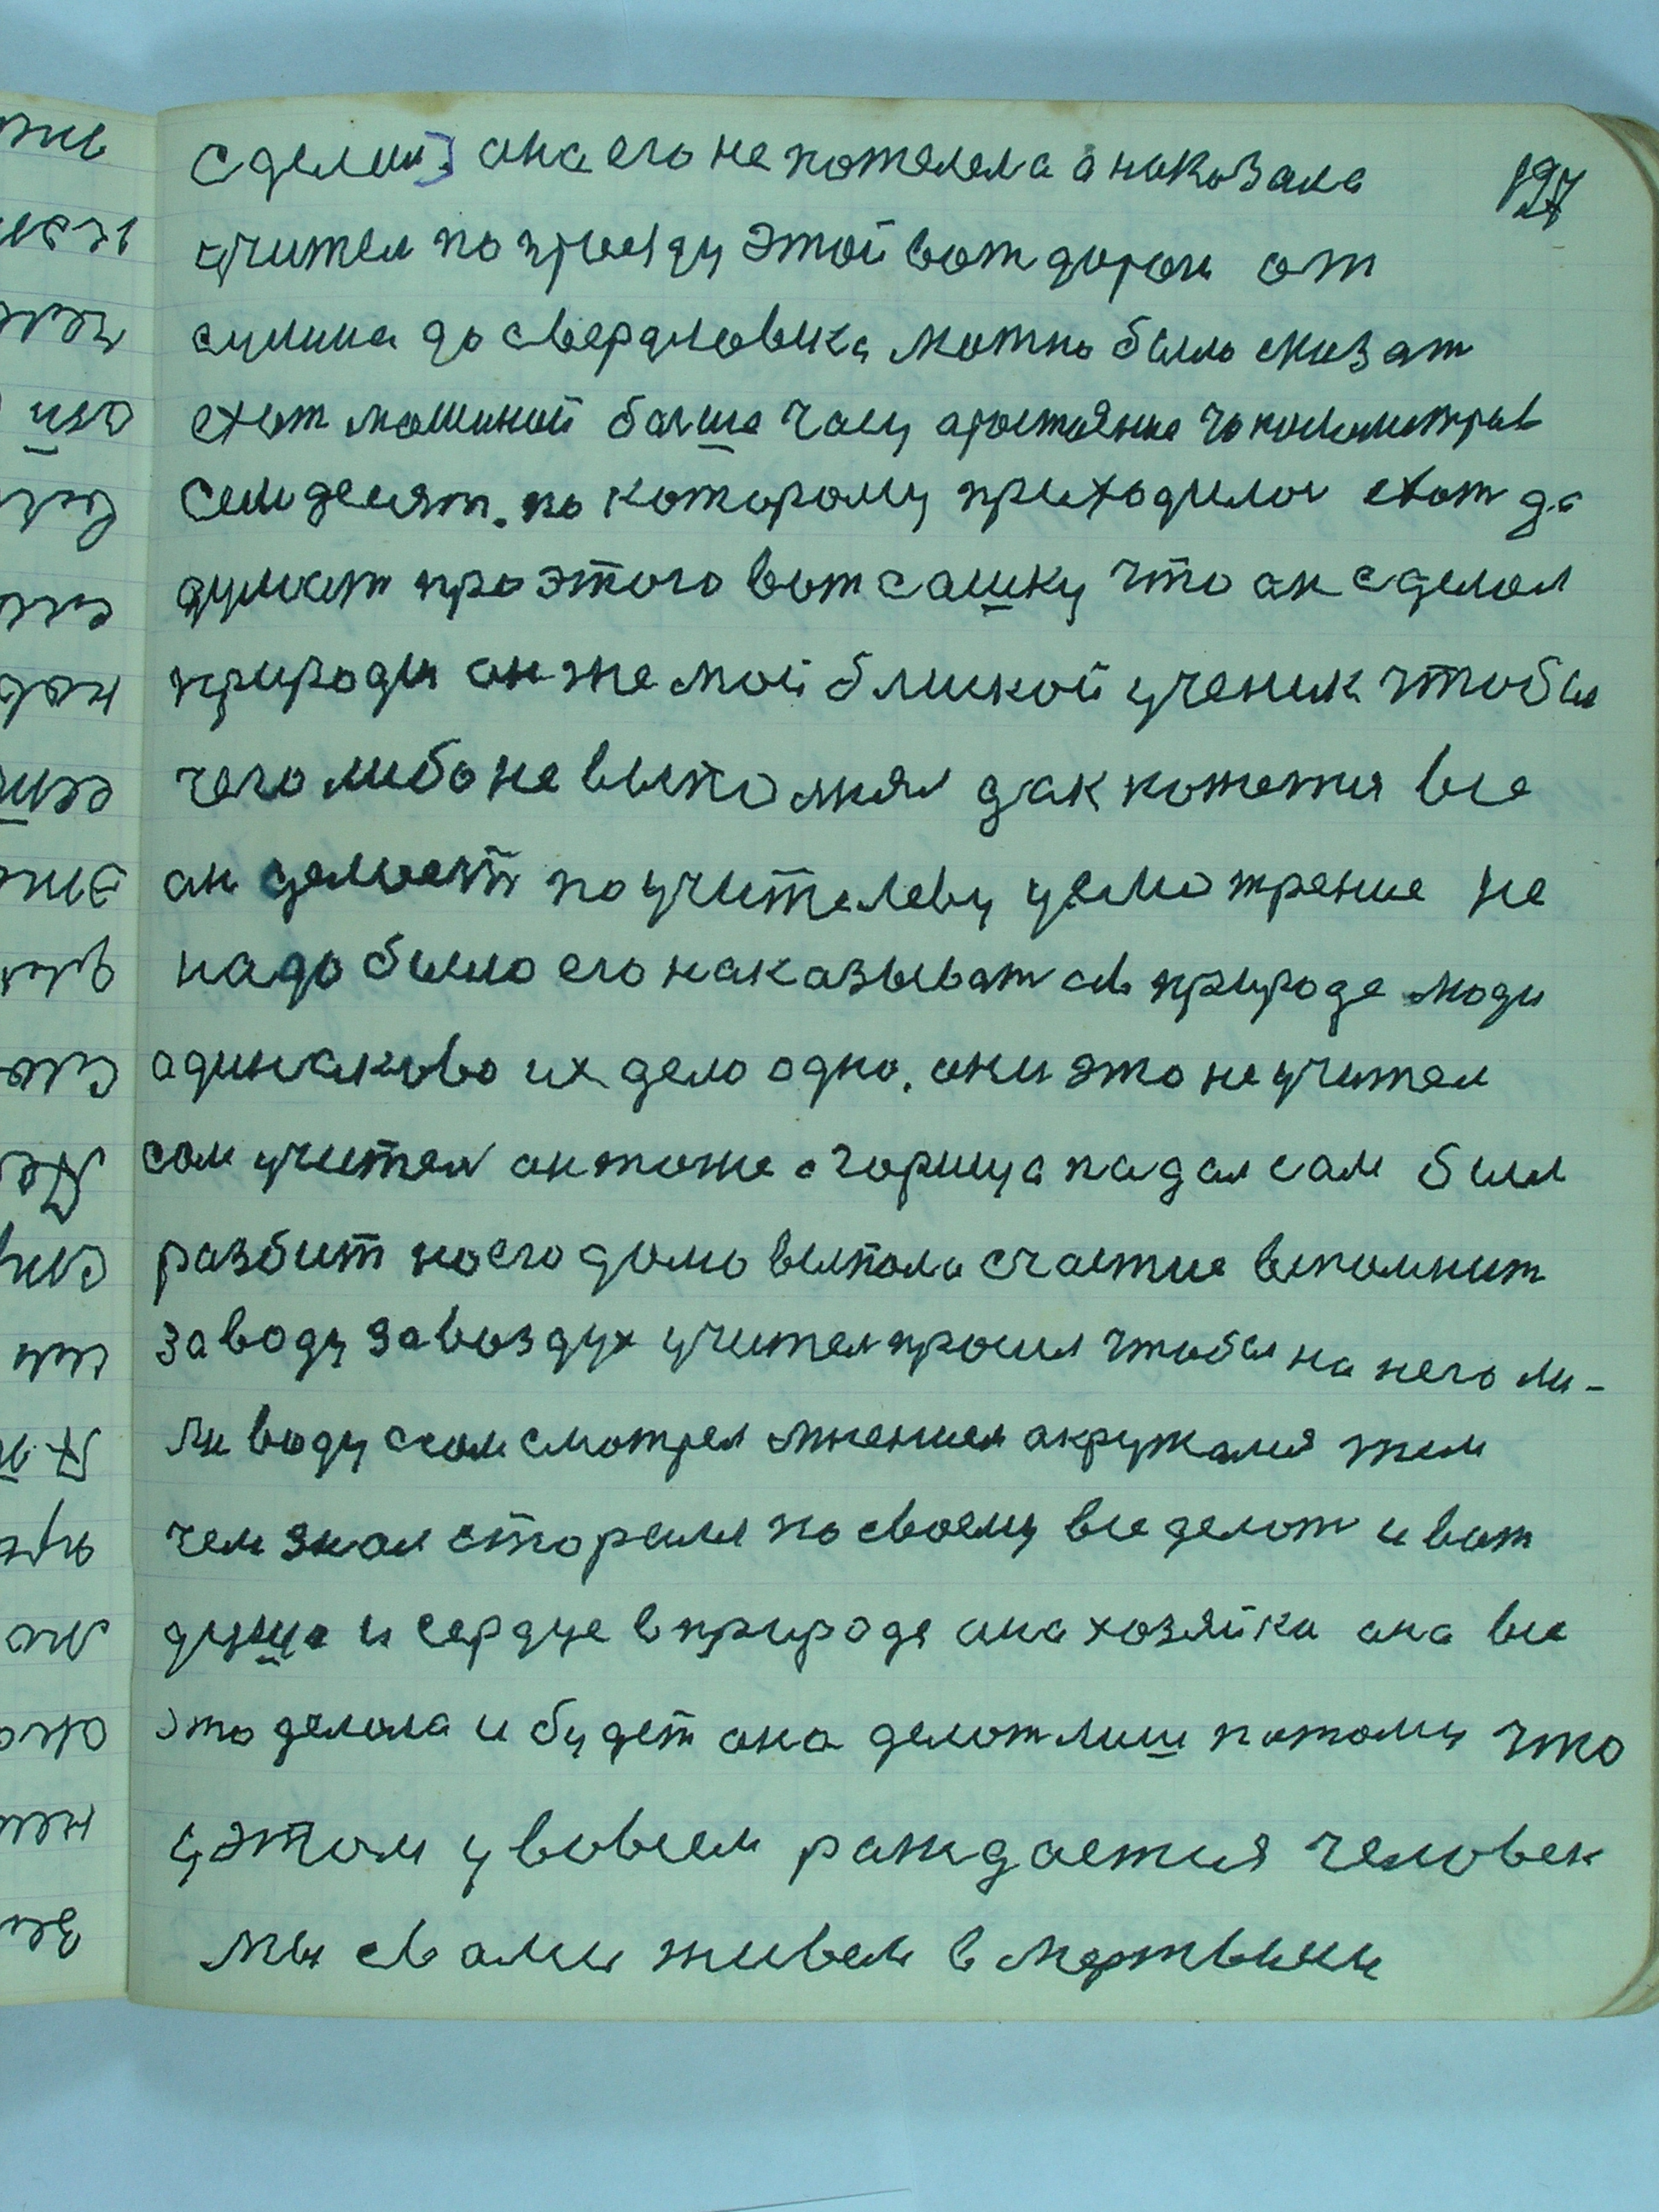 сделиш, ана его не пожелела а наказала
127
учител по приезду этой вот дороги от
сулина до свердловска можно было сказат
ехат машиной болше часу аростаяние
семдесят. по которому приходилос ехат да
думает про этого вот сашку что ан сделал
природи ан же мой близкой ученик чтобы
чего либо не выполнял дак кажется все
ан делает по учителеву усмотрение не
надо было его наказыват ов природе люди
адинаково их дело одно. ани это не учител
сам учител ан тоже с горица падал сам был
разбит но его дома выпало счастие вспомнит
за воду за воздух учител просил чтобы на него ли-
ли воду сам смотрел мнением акружался тем
чем знал старалс по своему все делат и вот
душа и сердце в природе ана хозяйка ана все
это делала и будет ана делат лиш потому что
у этом у вовсем раждается человек
мы свами живем в мертвым